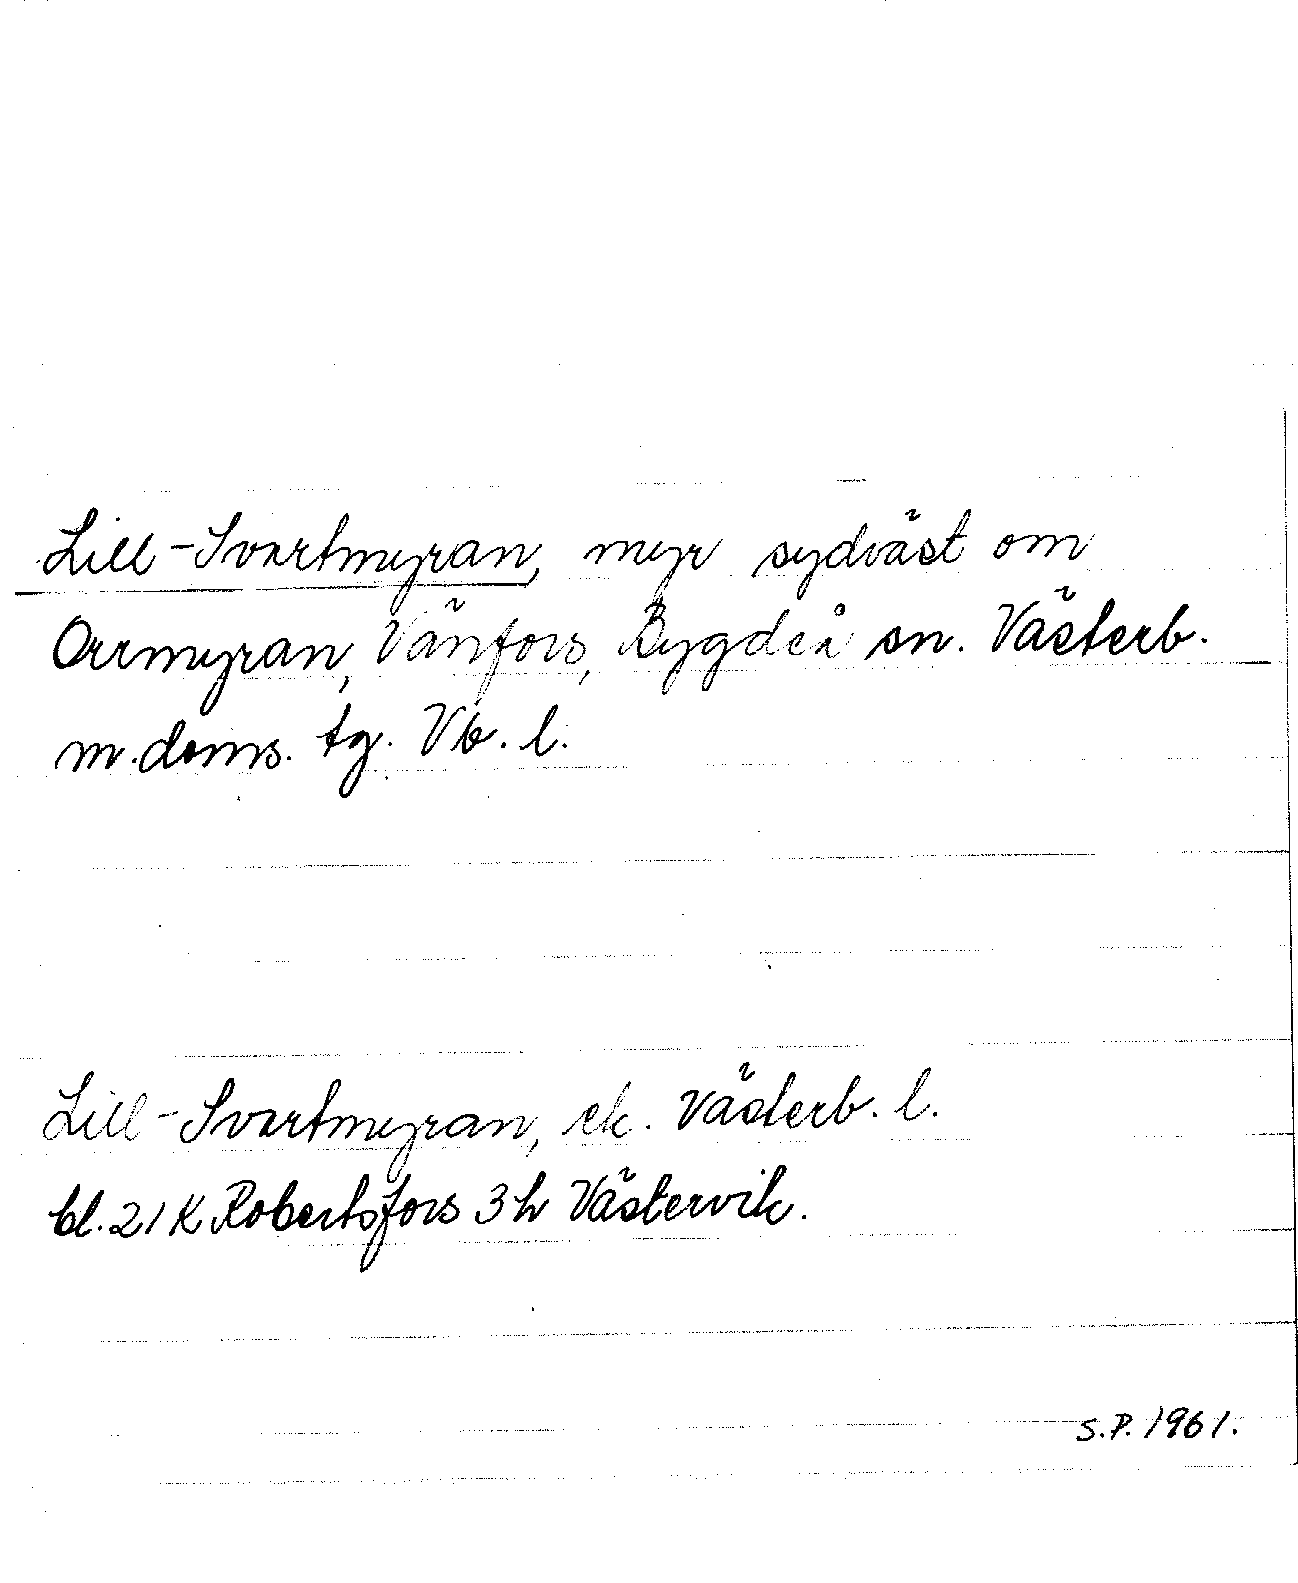 Lill-Svartmyran, myr sydväst om
Orrmyran, Vänfors, Bygdeå sn. Västerb.
m. doms. tg. Vb. l.
Lill-Svartmyran, ek. Västerb. l.
bl. 21 K Robertsfors 3 h Västervik.
S.P. 1961.